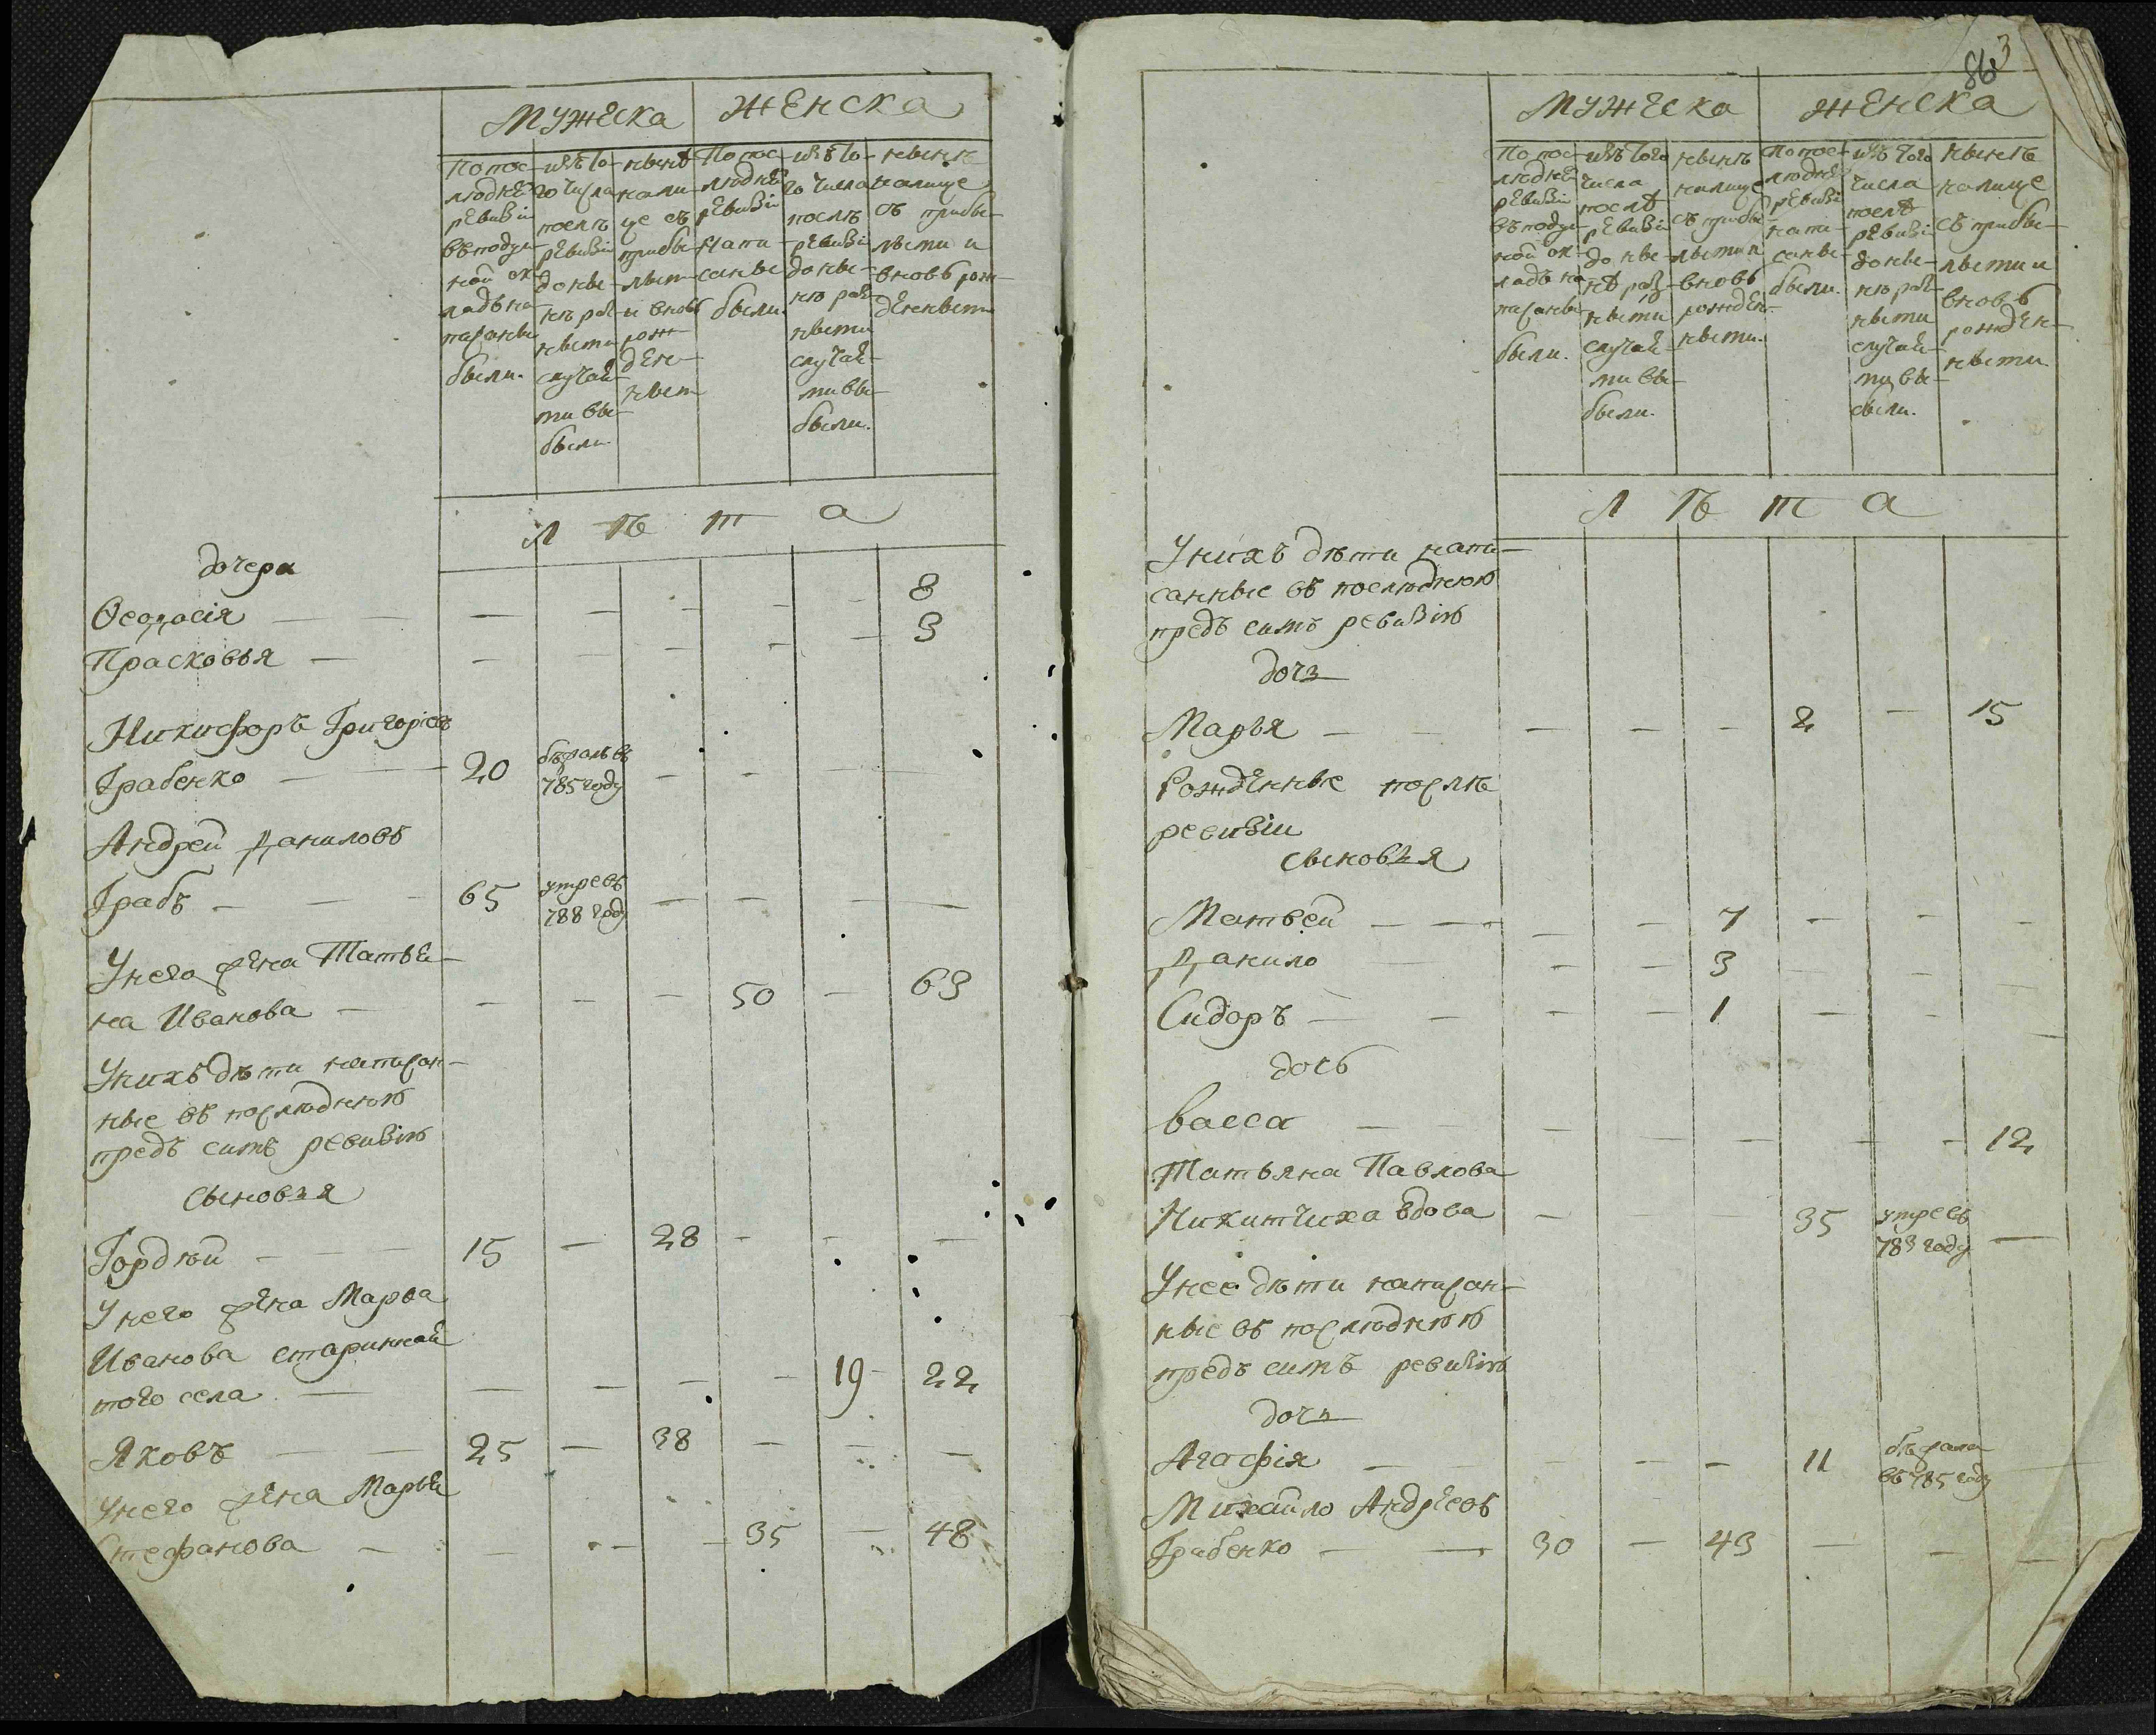 мужеска женска
По пос-
ледней
ревизiи
въ подуш-
ной ок-
ладъ на-
писаны
были.
изъ то-
го числа
послѣ
ревизiи
до ны-
нѣ раз-
ными
случай-
ми вы-
были
нынѣ
нали-
це съ
прибы-
лыми
и вновь
рож-
ден-
ными
По пос-
ледней
ревизiи
напи-
саны
были.
изъ то-
го числа
послѣ
ревизiи
до ны-
нѣ раз-
ными
случай-
ми вы-
были.
нынѣ
налице
съ прибы-
лыми и
вновь рож-
денными
лѣта
дочери
Ѳеодосiя — — — — — — — 8
Прасковья — — — — — — 3
Никифоръ Григорьевъ
Грабенко — 20 бѣжалъ въ
785 году — — — —
Андрей Даниловъ
Грабъ — 65 умре въ
788 году — — — —
У него жена Татья-
на Иванова — — — — 50 — 63
У нихъ дѣти написан-
ные въ последнюю
предъ симъ ревизiю
сыновья
Гордѣй — 15 — 28 — — —
У него жена Марфа
Иванова старинной
того села — — — — — 19 — 22
Яковъ — 25 — 38 — — —
У него жена Марья
Стефанова — — — — 35 — 48
863
мужеска женска
По пос-
ледней
ревизiи
въ подуш-
ной ок-
ладъ на-
писаны
были.
изъ того
числа
послѣ
ревизiи
до ны-
нѣ раз-
ными
случай-
ми вы-
были.
нынѣ
налице
съ прибы-
лыми и
вновь
рожден-
ными.
По пос-
ледней
ревизiи
напи-
саны
были.
изъ того
числа
послѣ
ревизiи
до ны-
нѣ раз-
ными
случай-
ми вы-
были.
нынѣ
налице
съ прибы-
лыми и
вновь
рожден-
ными
лѣта
У нихъ дѣти напи-
санные въ последнюю
предъ симъ ревизiю
дочь
Марья — — — — 2 — 15
Рожденные послѣ
ревизiи
сыновья
Матвей — — — 7 — — —
Данило — — — 3 — — —
Сидоръ — — — 1 — — —
дочь
Васса — — — — — — 12
Татьяна Павлова
Никитчиха вдова — — 35 умре въ
783 году —
У нее дѣти написан-
ные въ последнюю
предъ симъ ревизiю
дочь
Агафiя — — — — 11 бѣжала
въ 785 году —
Михайло Андреевъ
Грабенко — 30 — 43 — — —